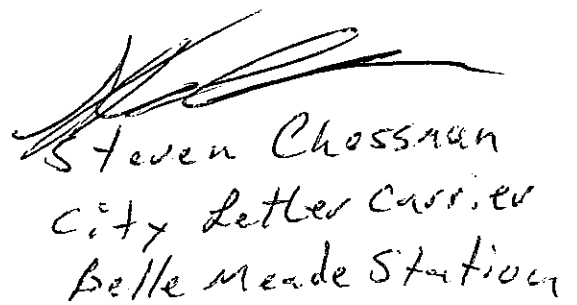 Steven Chossman
City Letter Carrier
Belle Meade Station